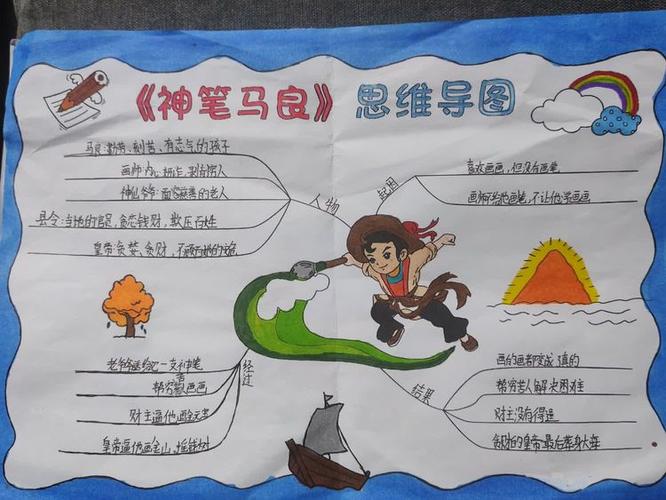 《神笔马良》 思维导图
人物
马良:勤劳、刻苦、有志气的孩子
画师:内心
神仙爷爷:面容慈善的老人
县令:当地的官员,贪恋钱财,欺压百姓
皇帝:贪婪、贪财,不顾百姓的
起因
喜欢画画,但没有画笔
画师不给他画笔,不让他学画画
经过
老爷爷送给他一支神笔
帮穷人画画
财主逼他画元宝
皇帝逼他画金山、摇钱树
结果
画的画都变成 真的
帮穷苦人解决困难
财主没有得逞
贪财的皇帝最后葬身大海